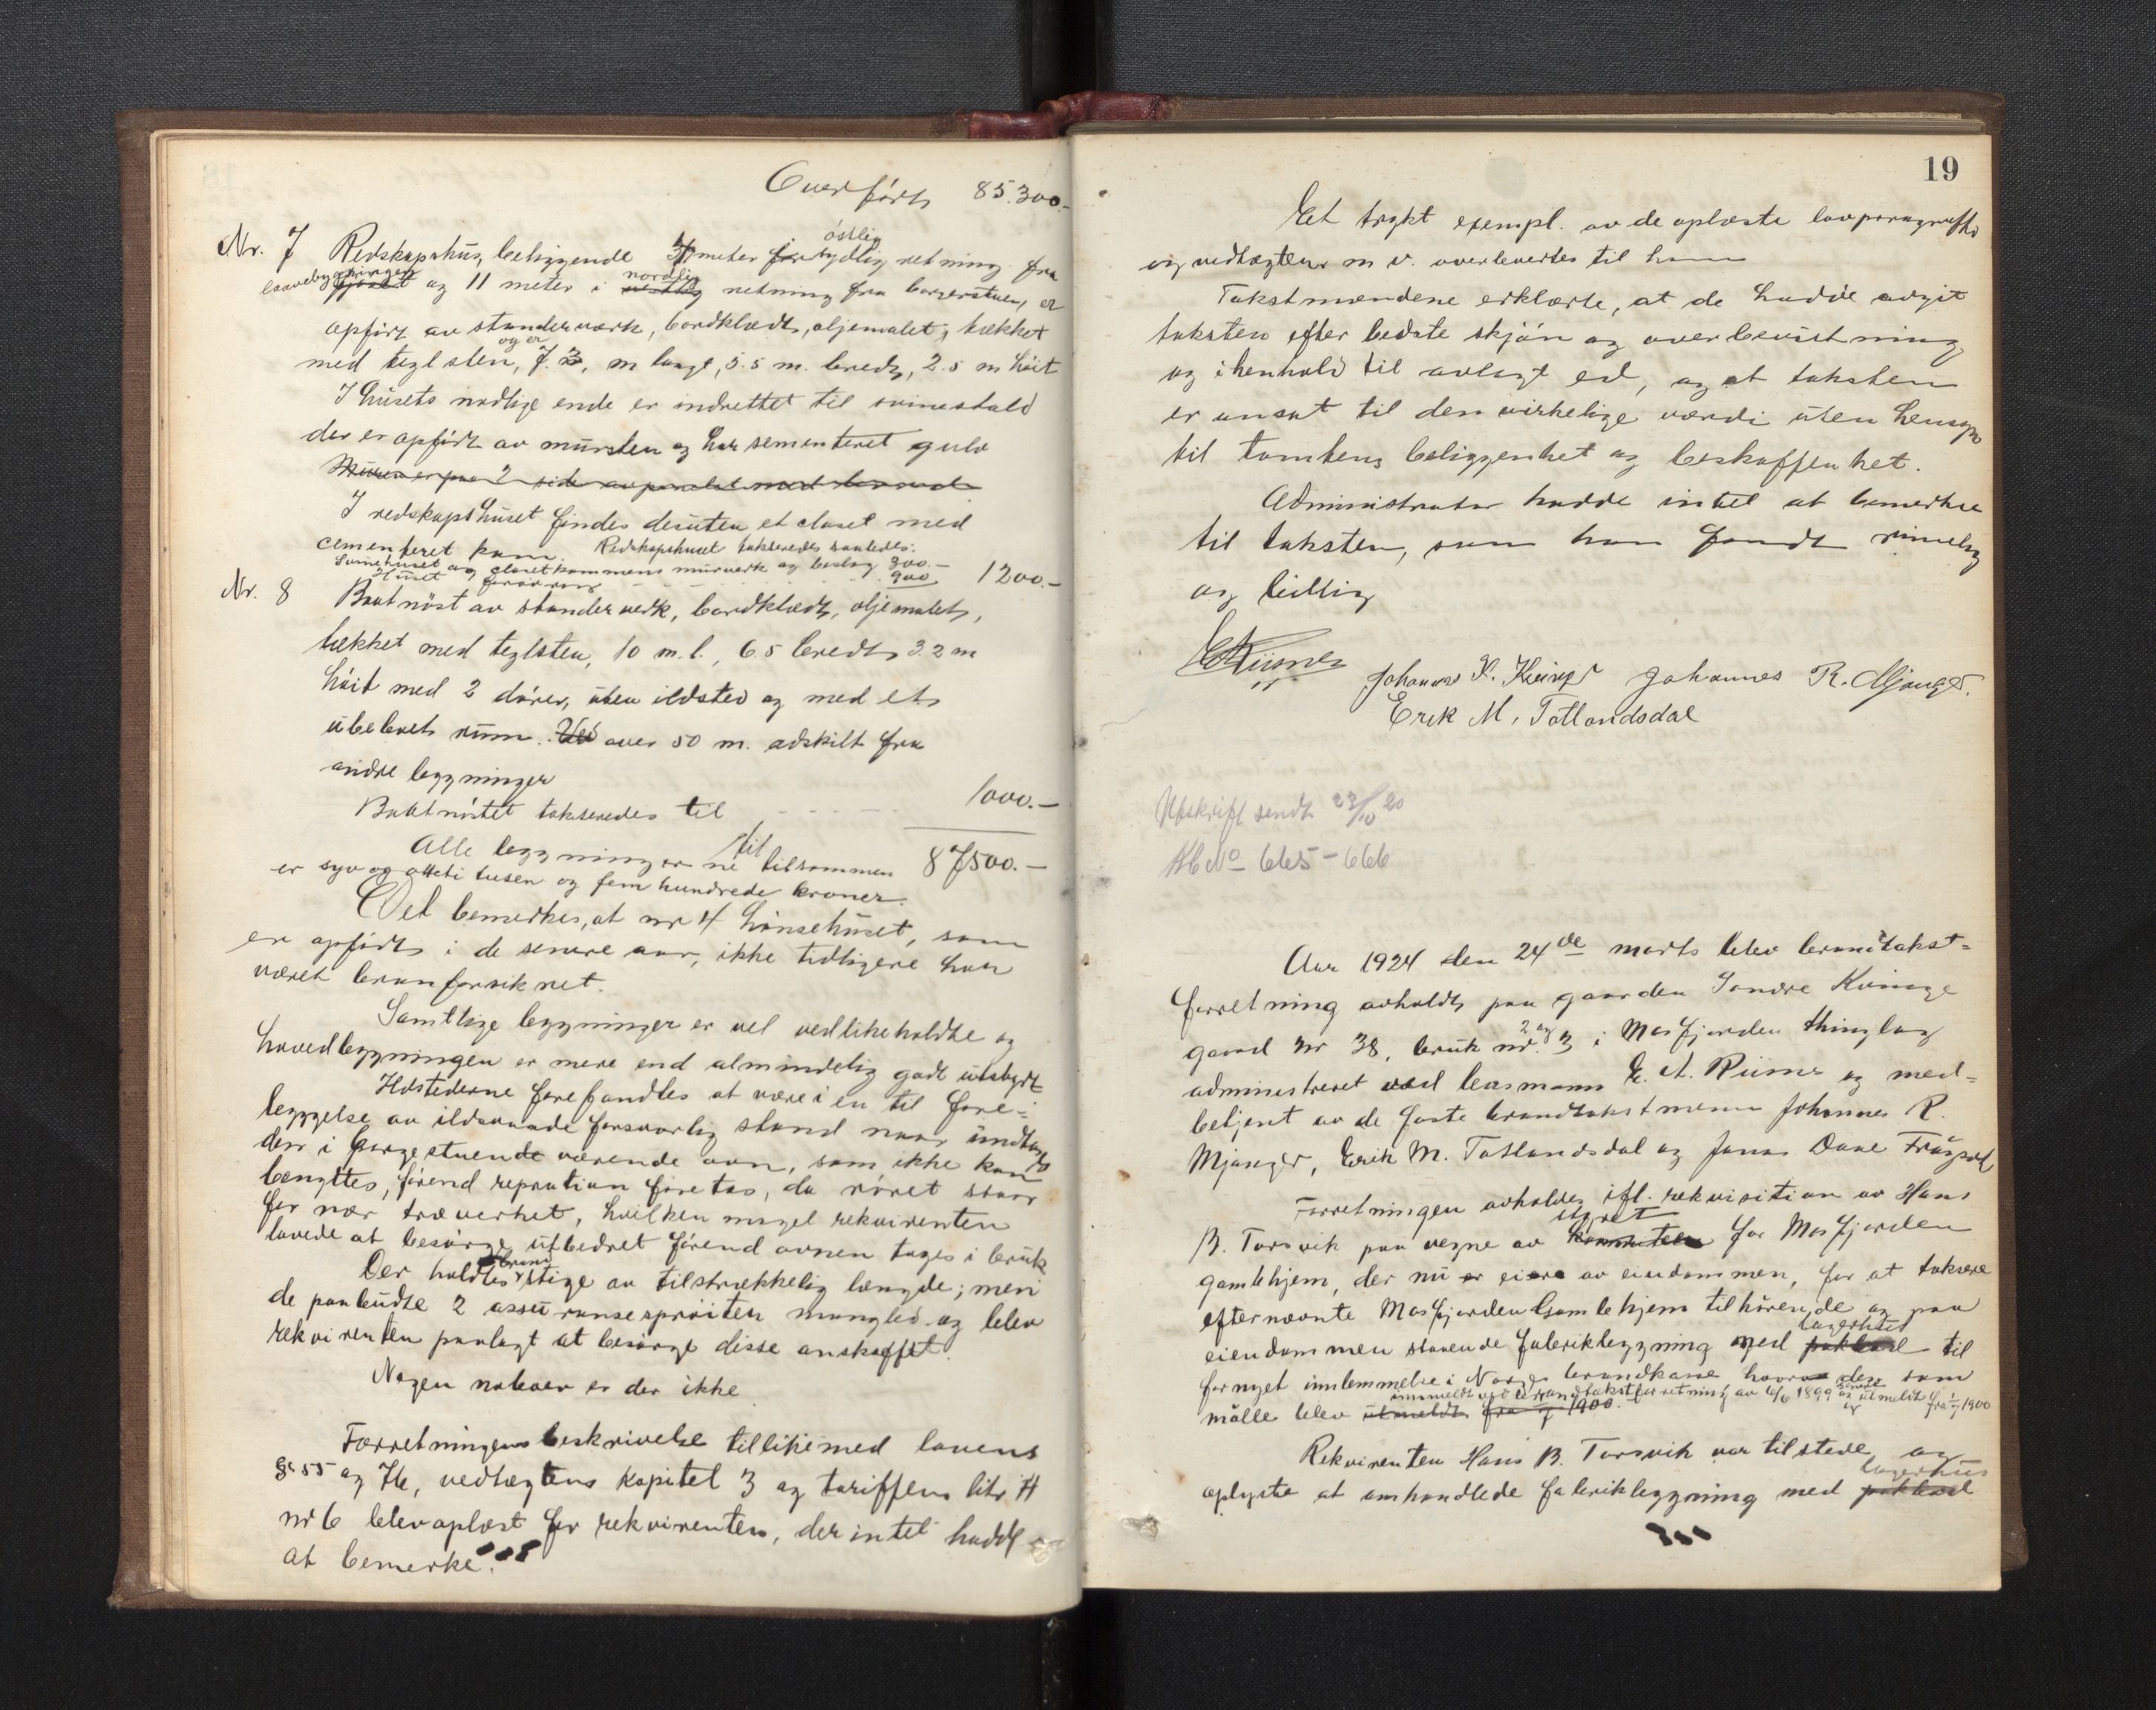 Overført 85.300.-
Nr. 7 Redskapshus, beliggende meter i østlig retning fra
laavebygningen og 11 meter i nordlig retning fra borgerstuen, er
opført av standerværk, bordklædt, oljemalet, tækket
med teglsten, og er 7.3, m langt, 5.5 m. bredt, 2.5 m høit
I husets nodlige ende er indrettet til svinestald
der er opført av mursten og har sementeret gulv
I redskapshuset findes desuten et closet med
cementeret kum. Redskapshuset takseredes saaledes:
Svinehuset og closetkummens murverk og beslag 300.-
Huset forøvrig 900 1200.-
Nr. 8 Baatnøst av standerverk, bordklædt, oljemalet,
tækket med teglsten, 10 m. l., 6.5 bredt, 3.2 m
høit med 2 dører, uten ildsted og med et
ubeboet rum. over 50 m. adskilt fra
andre bygninger
Baatnøstet takseredes til 1000.-
Alle bygninger til tilsammen 87500.-
er syv og otteti tusen og fem hundrede kroner.
Det bemerkes, at nr 4 hønsehuset, som
er opført i de senere aar, ikke tidligere har
været branforsikret.
Samtlige bygninger er vel vedlikeholdte og
hovedbygningen er mere end almindelig godt utstyrt
Ildstederne forefandtes at være i en til fore-
byggelse av ildsvaade forsvarlig stand naar undtas
den i borgestuen værende ovn, som ikke kan
benyttes, førend repration foretas, da røret staar
for nær træverket, hvilken magel rekvirenten
lovede at besørge utbedret førend ovnen tages i bruk
Der holdtes brandstige av tilstrækkelig længde; men
de paabudte 2 assuransesprøiten manglet og blev
rekvirenten paalagt at besørge disse anskaffet.
Nogen naboer er der ikke
Forretningens beskrivelse tillikemed lovens
§§ 55 og 76, vedtægtens kapitel 3 og tariffens litr H
nr 6 blev oplæst for rekvirenten, der intet hadde
at bemerke.
19
Et trykt exempl. av de oplæste lovparagraffer
og vedtægter m v. overlevertes til ham
Takstmændene erklærte, at de hadde avgit
taksten efter bedste skjøn og overbevistning
og i henhold til avlagt ed, og at taksten
er ansat til den virkelige værdi uten hensyn
til tomtens beliggenhet og beskaffenhet.
Administrator hadde intet at bemerke
til taksten, som han fandt rimelig
og billig
Johannes R. Mjanger.
Erik M. Totlandsdal
Utskrift sendt 23/10 20
No 665-666
Aar 1924 den 24de marts blev brandtakst-
forretning avholdt paa gaarden Søndre Kvinge
gaard nr 38, bruk nr. 2 og 3 i Masfjorden thinglag
administreret ved lensmann E. A. Riisnes og med-
betjent av de faste brandtakstmænn Johannes R.
Mjanger, Erik M. Totlandsdal og Jonas Daae Frøyset
Forretningen avholdes ifl. rekvisition av Hans
B. Torsvik paa vegne av styret for Masfjorden
gamlehjem, der nu er eiere av eiendommen, for at taksere
efternævnte Masfjorden Gamlehjem tilhørende og paa
eiendommen staaende fabrikbygning med lagerhus til
fornyet innlemmelse i Norges brandkasse hvor den som
mølle blev innmeldt ved brandtakstforretning av 6/6 1899 og senere er utmeldt fra 1/7 1900
Rekvirenten Hans B. Torsvik var tilstede og
oplyste at omhandlede fabrikbygning med lagerhus